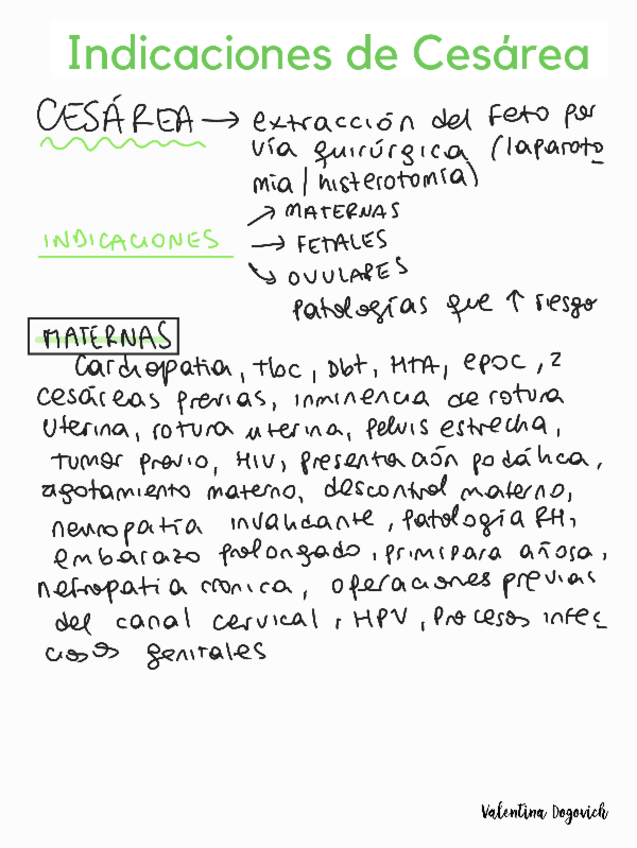 Indicaciones de Cesárea
CESÁREA → extracción del feto por
vía quirúrgica (laparoto
mia / histerotomía)
→ MATERNAS
INDICACIONES → FETALES
→ OVULARES
patologías que ↑ riesgo
MATERNAS
Cardiopatia, Tbc, Dbt, HTA, epoc, 2
cesáreas previas, inminencia de rotura
uterina, rotura uterina, pelvis estrecha,
tumor previo, HIV, presentación podálica,
agotamiento materno, descontrol materno,
neuropatía invalidante, patología RH,
embarazo prolongado, primipara añosa,
nefropatia cronica, operaciones previas
del canal cervical, HPV, procesos infec
ciosos genitales
Valentina Dogovich